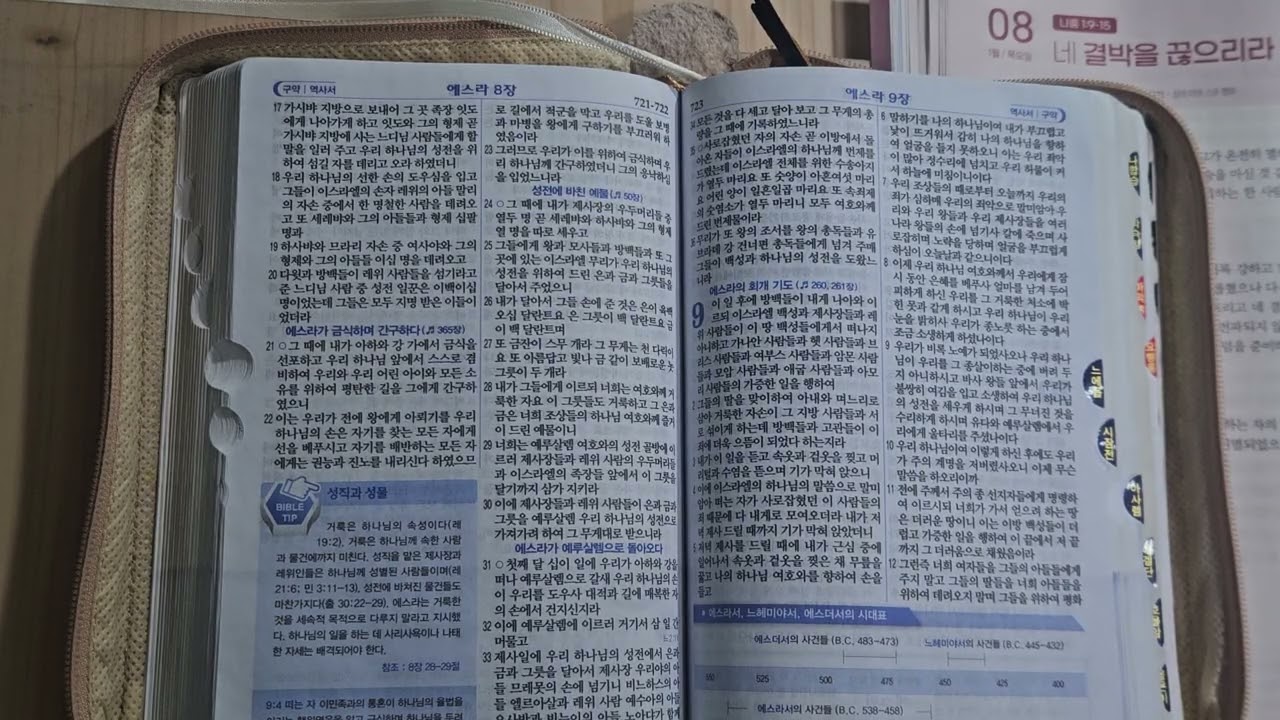 구약 | 역사서
에스라 8장
721-722
17 가시뱌 지방으로 보내어 그 곳 족장 잇도
에게 나아가게 하고 잇도와 그의 형제 곧
가시뱌 지방에 사는 느디님 사람들에게 할
말을 일러 주고 우리 하나님의 성전을 위
하여 섬길 자를 데리고 오라 하였더니
18 우리 하나님의 선한 손의 도우심을 입고
그들이 이스라엘의 손자 레위의 아들 말리
의 자손 중에서 한 명철한 사람을 데려오
고 또 세레뱌와 그의 아들들과 형제 십팔
명과
19 하사뱌와 므라리 자손 중 여사야와 그의
형제와 그의 아들들 이십 명을 데려오고
20 다윗과 방백들이 레위 사람들을 섬기라고
준 느디님 사람 중 성전 일꾼은 이백이십
명이었는데 그들은 모두 지명 받은 이들이
었더라
에스라가 금식하며 간구하다 (♬ 365장)
21 ○그 때에 내가 아하와 강 가에서 금식을
선포하고 우리 하나님 앞에서 스스로 겸
비하여 우리와 우리 어린 아이와 모든 소
유를 위하여 평탄한 길을 그에게 간구하
였으니
22 이는 우리가 전에 왕에게 아뢰기를 우리
하나님의 손은 자기를 찾는 모든 자에게
선을 베푸시고 자기를 배반하는 모든 자
에게는 권능과 진노를 내리신다 하였으므
BIBLE
TIP
성직과 성물
거룩은 하나님의 속성이다(레
19:2), 거룩은 하나님께 속한 사람
과 물건에까지 미친다. 성직을 맡은 제사장과
레위인들은 하나님께 성별된 사람들이며(레
21:6; 민 3:11-13), 성전에 바쳐진 물건들도
마찬가지다(출 30:22-29). 에스라는 거룩한
것을 세속적 목적으로 다루지 말라고 지시했
다. 하나님의 일을 하는 데 사리사욕이나 나태
한 자세는 배격되어야 한다.
참조 : 8장 28-29절
9:4 떠는 자 이민족과의 통혼이 하나님의 율법을
로 길에서 적군을 막고 우리를 도울 보병
과 마병을 왕에게 구하기를 부끄러워 하
였음이라
23 그러므로 우리가 이를 위하여 금식하며 우
리 하나님께 간구하였더니 그의 응낙하심
을 입었느니라
성전에 바친 예물 (♬ 50장)
24 ○그 때에 내가 제사장의 우두머리들 중
열두 명 곧 세레뱌와 하사뱌와 그의 형제
열 명을 따로 세우고
25 그들에게 왕과 모사들과 방백들과 또 그
곳에 있는 이스라엘 무리가 우리 하나님의
성전을 위하여 드린 은과 금과 그릇들을
달아서 주었으니
26 내가 달아서 그들 손에 준 것은 은이 육백
오십 달란트요 은 그릇이 백 달란트요 금
이 백 달란트며
27 또 금잔이 스무 개라 그 무게는 천 다릭이
요 또 아름답고 빛나 금 같이 보배로운 놋
그릇이 두 개라
28 내가 그들에게 이르되 너희는 여호와께 거
룩한 자요 이 그릇들도 거룩하고 그 은과
금은 너희 조상들의 하나님 여호와께 즐거
이 드린 예물이니
29 너희는 예루살렘 여호와의 성전 골방에 이
르러 제사장들과 레위 사람의 우두머리들
과 이스라엘의 족장들 앞에서 이 그릇을
달기까지 삼가 지키라
30 이에 제사장들과 레위 사람들이 은과 금과
그릇을 예루살렘 우리 하나님의 성전으로
가져가려 하여 그 무게대로 받으니라
에스라가 예루살렘으로 돌아오다
31 ○첫째 달 십이 일에 우리가 아하와 강을
떠나 예루살렘으로 갈새 우리 하나님의 손
이 우리를 도우사 대적과 길에 매복한 자
의 손에서 건지신지라
32 이에 예루살렘에 이르러 거기서 삼 일 간
머물고
33 제사일에 우리 하나님의 성전에서 은과
금과 그릇을 달아서 제사장 우리야의 아
들 므레못의 손에 넘기니 비느하스의 아
들 엘르아살과 레위 사람 예수아의 아들
요사밧과 빈누이의 아들 노아댜가 함께
723
에스라 9장
역사서 | 구약
모든 것을 다 세고 달아 보고 그 무게의 총
량을 그 때에 기록하였느니라
○사로잡혔던 자의 자손 곧 이방에서 돌
아온 자들이 이스라엘의 하나님께 번제를
드렸는데 이스라엘 전체를 위한 수송아지
가 열두 마리요 또 숫양이 아흔여섯 마리
요 어린 양이 일흔일곱 마리요 또 속죄제
의 숫염소가 열두 마리니 모두 여호와께
드린 번제물이라
무리가 또 왕의 조서를 왕의 총독들과 유
브라데 강 건너편 총독들에게 넘겨 주매
그들이 백성과 하나님의 성전을 도왔느
니라
에스라의 회개 기도 (♬ 260, 261장)
9 이 일 후에 방백들이 내게 나아와 이
르되 이스라엘 백성과 제사장들과 레
위 사람들이 이 땅 백성들에게서 떠나지
아니하고 가나안 사람들과 헷 사람들과 브
리스 사람들과 여부스 사람들과 암몬 사람
들과 모압 사람들과 애굽 사람들과 아모
리 사람들의 가증한 일을 행하여
2 그들의 딸을 맞이하여 아내와 며느리로
삼아 거룩한 자손이 그 지방 사람들과 서
로 섞이게 하는데 방백들과 고관들이 이
죄에 더욱 으뜸이 되었다 하는지라
3 내가 이 일을 듣고 속옷과 겉옷을 찢고 머
리털과 수염을 뜯으며 기가 막혀 앉으니
4 이에 이스라엘의 하나님의 말씀으로 말미
암아 떠는 자가 사로잡혔던 이 사람들의
죄 때문에 다 내게로 모여오더라 내가 저
녁 제사 드릴 때까지 기가 막혀 앉았더니
5 저녁 제사를 드릴 때에 내가 근심 중에
일어나서 속옷과 겉옷을 찢은 채 무릎을
꿇고 나의 하나님 여호와를 향하여 손을
들고
6 말하기를 나의 하나님이여 내가 부끄럽고
낯이 뜨거워서 감히 나의 하나님을 향하
여 얼굴을 들지 못하오니 이는 우리 죄악
이 많아 정수리에 넘치고 우리 허물이 커
서 하늘에 미침이니이다
7 우리 조상들의 때로부터 오늘까지 우리의
죄가 심하매 우리의 죄악으로 말미암아 우
리와 우리 왕들과 우리 제사장들을 여러
나라 왕들의 손에 넘기사 칼에 죽으며 사
로잡히며 노략을 당하며 얼굴을 부끄럽게
하심이 오늘날과 같으니이다
8 이제 우리 하나님 여호와께서 우리에게 잠
시 동안 은혜를 베푸사 얼마를 남겨 두어
피하게 하신 우리를 그 거룩한 처소에 박
힌 못과 같게 하시고 우리 하나님이 우리
눈을 밝히사 우리가 종노릇 하는 중에서
조금 소생하게 하셨나이다
9 우리가 비록 노예가 되었사오나 우리 하나
님이 우리를 그 종살이하는 중에 버려 두
지 아니하시고 바사 왕들 앞에서 우리가
불쌍히 여김을 입고 소생하여 우리 하나님
의 성전을 세우게 하시며 그 무너진 것을
수리하게 하시며 유다와 예루살렘에서 우
리에게 울타리를 주셨나이다
10 우리 하나님이여 이렇게 하신 후에도 우리
가 주의 계명을 저버렸사오니 이제 무슨
말씀을 하오리이까
11 전에 주께서 주의 종 선지자들에게 명령하
여 이르시되 너희가 가서 얻으려 하는 땅
은 더러운 땅이니 이는 이방 백성들이 더
럽고 가증한 일을 행하여 이 끝에서 저 끝
까지 그 더러움으로 채웠음이라
12 그런즉 너희 여자들을 그들의 아들들에게
주지 말고 그들의 딸들을 너희 아들들을
위하여 데려오지 말며 그들을 위하여 평화
에스라서, 느헤미야서, 에스더서의 시대표
에스더서의 사건들 (B.C. 483-473)
느헤미야서의 사건들 (B.C. 445-432)
550 525 500 475 450 425 400
에스라서의 사건들 (B.C. 538-458)
느헤미야
시편
잠언
08
1월 / 목요일
나훔 1:9-15
네 결박을 끊으리라